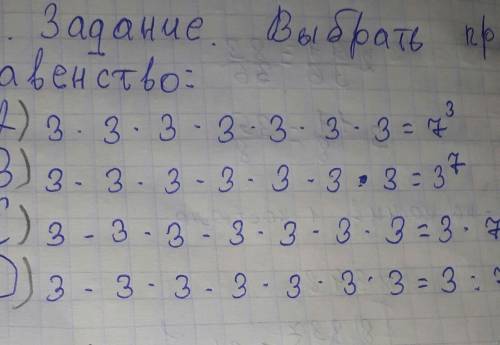 . Задание. Выбрать пр
авенство:
А) 3 · 3 · 3 · 3 · 3 · 3 · 3 = 7³
B) 3 · 3 · 3 · 3 · 3 · 3 · 3 = 3⁷
C) 3 · 3 · 3 · 3 · 3 · 3 · 3 = 3 · 7
D) 3 · 3 · 3 · 3 · 3 · 3 · 3 = 3 : 7